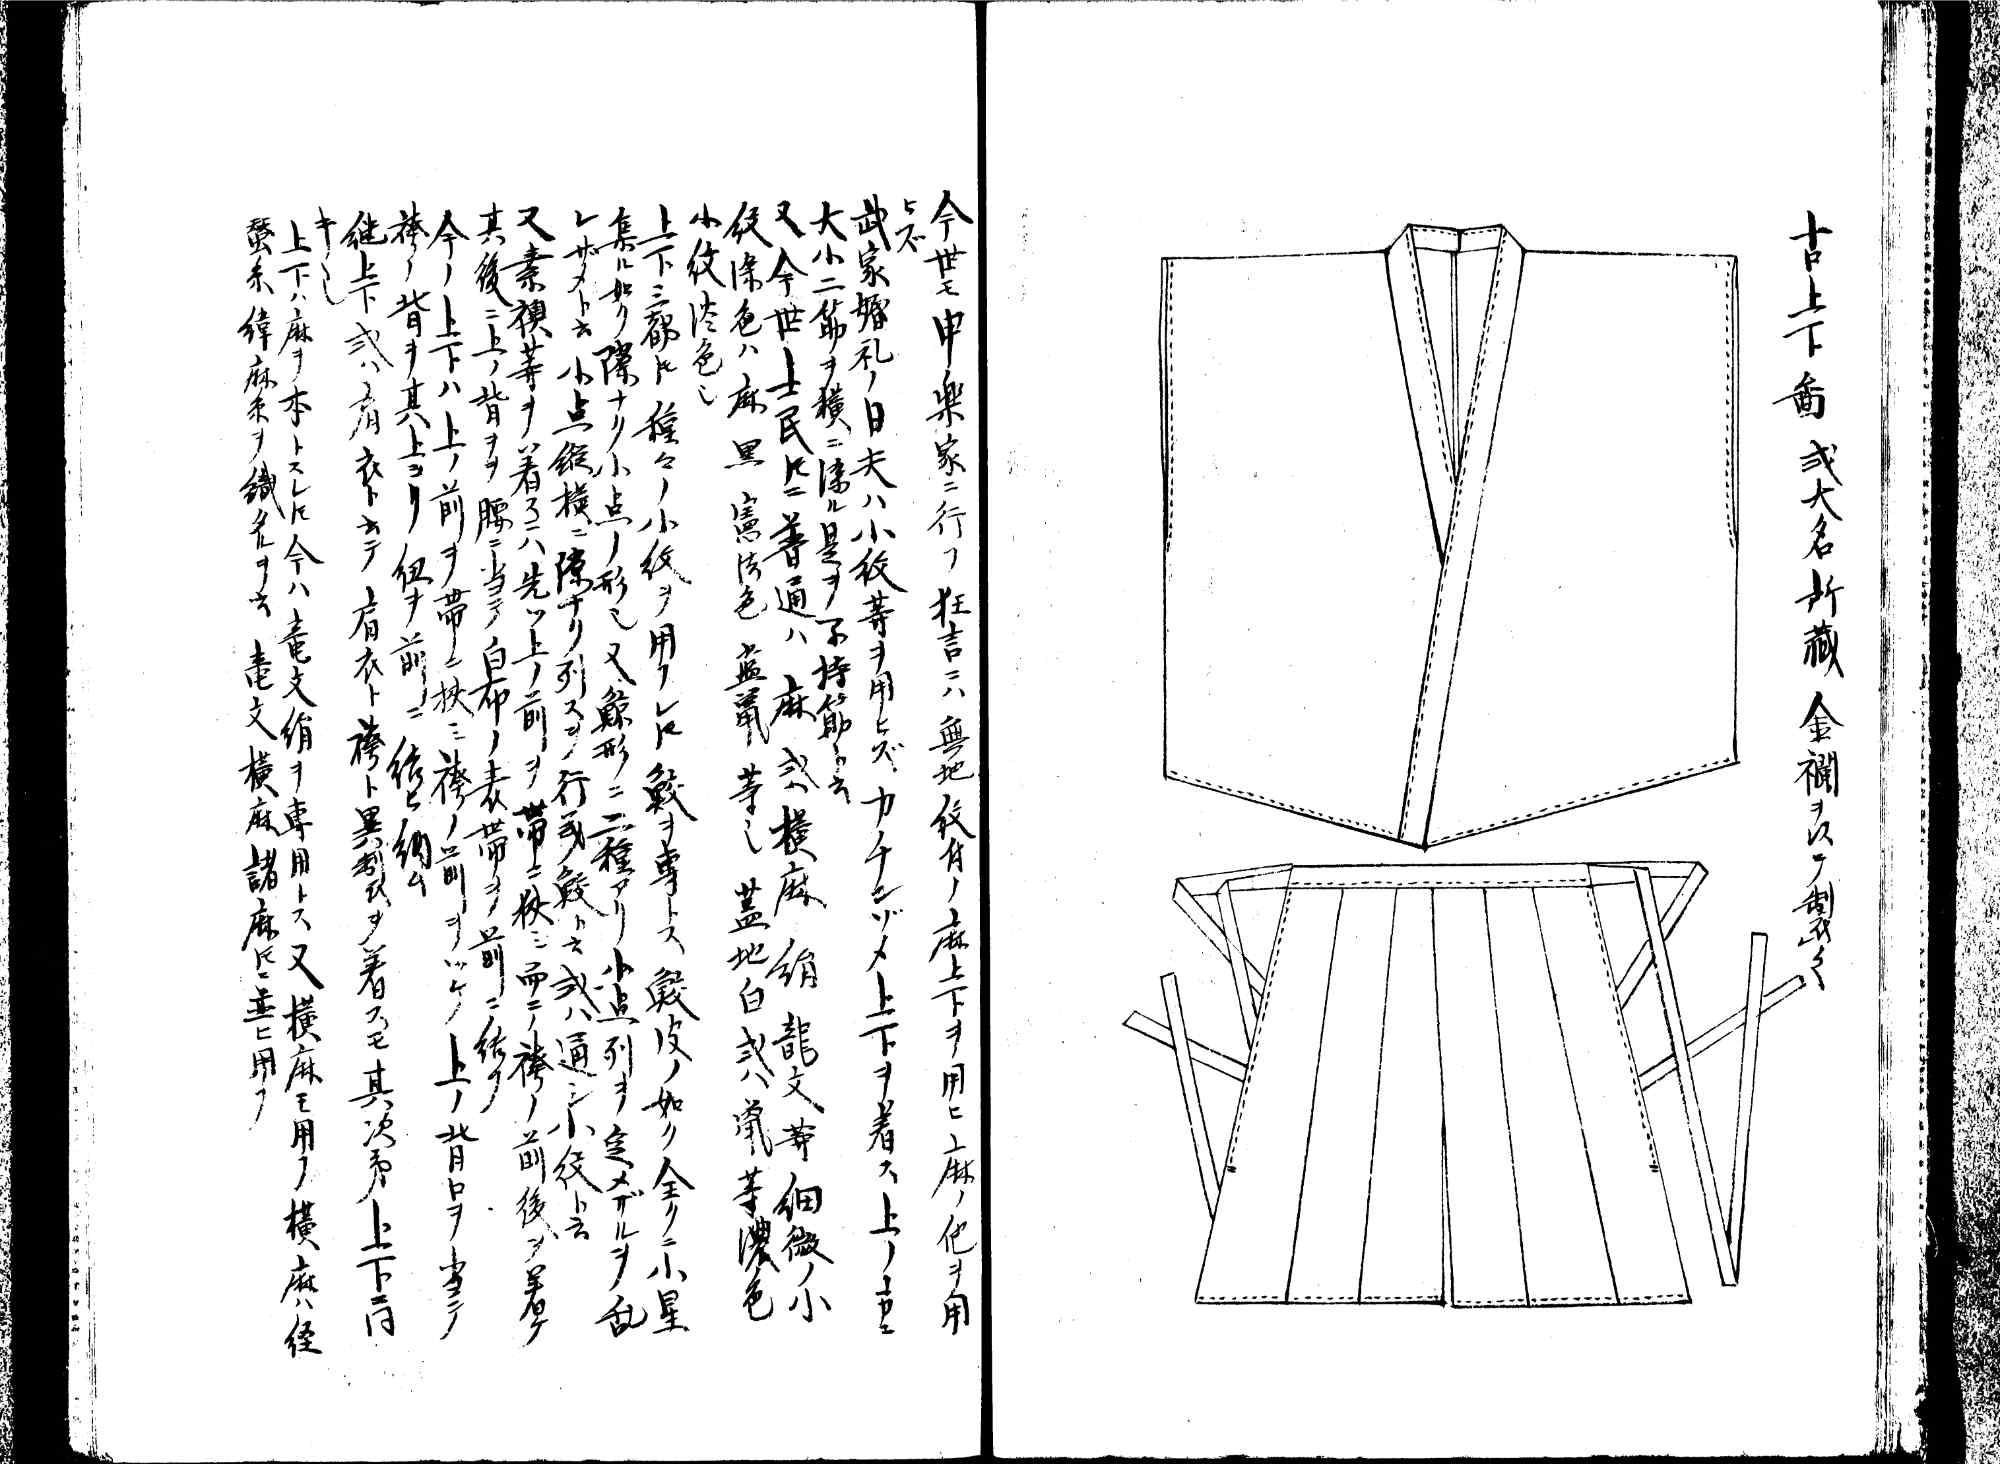 古上下図 或大名所蔵 金襴ヲ以テ製之
今世モ申楽家ニ行フ狂言ニハ無地紋付ノ麻上下ヲ用ヒ麻ノ他ヲ用
ヒズ
武家婚礼ノ日夫ハ小紋等ヲ用ヒズカチンゾメ上下ヲ着ス上ノ
大小二筋ヲ横ニ染ル是ヲ子持筋ト云
又今世士民トモニ普通ハ麻或ハ横麻絹龍文等細微ノ小
紋染色ハ麻黒憲法色藍鼠等也蓋地白或ハ鼠等濃色
小紋淡色也
上下三都トモ種々ノ小紋ヲ用フレトモ鮫ヲ専トス鮫皮ノ如ク全クニ小星
集ル如ク隙ナク小点ノ形也又鮫形ニ二種アリ小点列ヲ定メザルヲ乱
レザメト云小点縦横ニ隙ナク列スヲ行義鮫ト云或ハ通シ小紋ト云
又素襖等ヲ着スニハ先ツ上ノ前ヲ帯ニ挟ミ而ニ袴ノ前後ヲ着ケ
其後ニ上ノ背ヲヲ腰ニ当テ白布ノ表帯ヲ前ニ結フ
今ノ上下ハ上ノ前ヲ帯ニ挟ミ袴ノ前ヲツケ上ノ背ロヲ当テ
袴ノ背ヲ其上ヨリ紐ヲ前ニ結ヒ納ム
継上下或ハ肩衣ト云テ肩衣ト袴ト異製ヲ着スモ其次第上下ニ同
キ也
上下ハ麻ヲ本トスレトモ今ハ竜文絹ヲ専用トス又横麻モ用フ横麻ハ経
蚕糸緯麻糸ヲ織タルヲ云竜文横麻諸麻トモニ並ヒ用フ